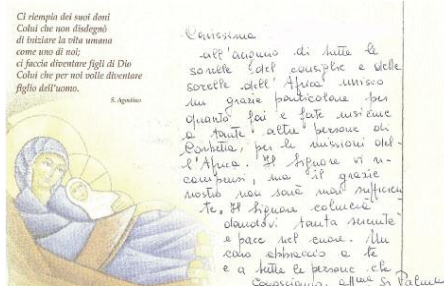 Ci riempia dei suoi doni
Colui che non disdegnò
di iniziare la vita umana
come uno di noi;
ci faccia diventare figli di Dio
Colui che per noi volle diventare
figlio dell'uomo.
S. Agostino
Carissima
all'augurio di tutte le
sorelle del consiglio e delle
sorelle dell'Africa unisco
un grazie particolare per
quanto fai e fate insieme
a tante altre persone di
Corbetta, per le missioni del-
l'Africa. Il Signore vi ri-
compensi, ma il grazie
nostro non sarà mai sufficien-
te. Il Signore colmerà
dandovi tanta serenità
e pace nel cuore. Un
caro abbraccio a te
e a tutte le persone che
conosciamo. aff.ma Sr